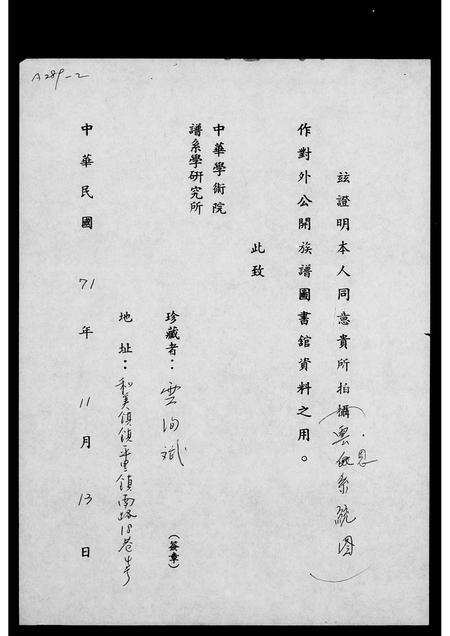 A289-2
茲證明本人同意貴所拍攝(雲氏系統圖)
作對外公開族譜圖書館資料之用。
此致
中華學術院
譜系學研究所
珍藏者：雲洵斌
(簽章)
地址：和美鎮鎮平里鎮南路18巷4号
中華民國71年11月13日